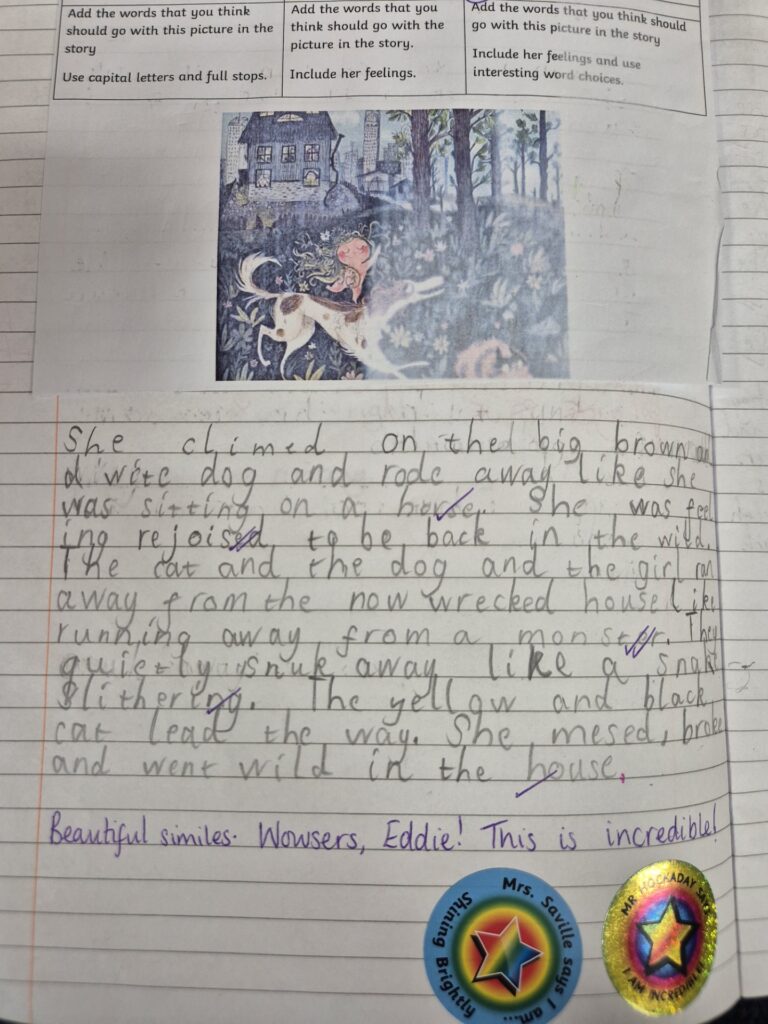 Add the words that you think
should go with this picture in the
story
Use capital letters and full stops.
Add the words that you
think should go with the
picture in the story.
Include her feelings.
Add the words that you think should
go with this picture in the story
Include her feelings and use
interesting word choices.
She chimed on thed big brown an
d wite dog and rode away like she
was sitting on a horse. She was feel
ing rejoised to be back in the wild.
The cat and the dog and the girl ran
away from the now wrecked house like
running away from a monster. They
quietly snuk away like a snake
Slithering. The yellow and black
cat lead the way. She mesed, broke
and went wild in the house.
Beautiful similes. Wowsers, Eddie! This is incredible!
Mrs. Saville says I am...
Shining Brightly
MR HOCKADAY SAYS
I AM INCREDIBLE